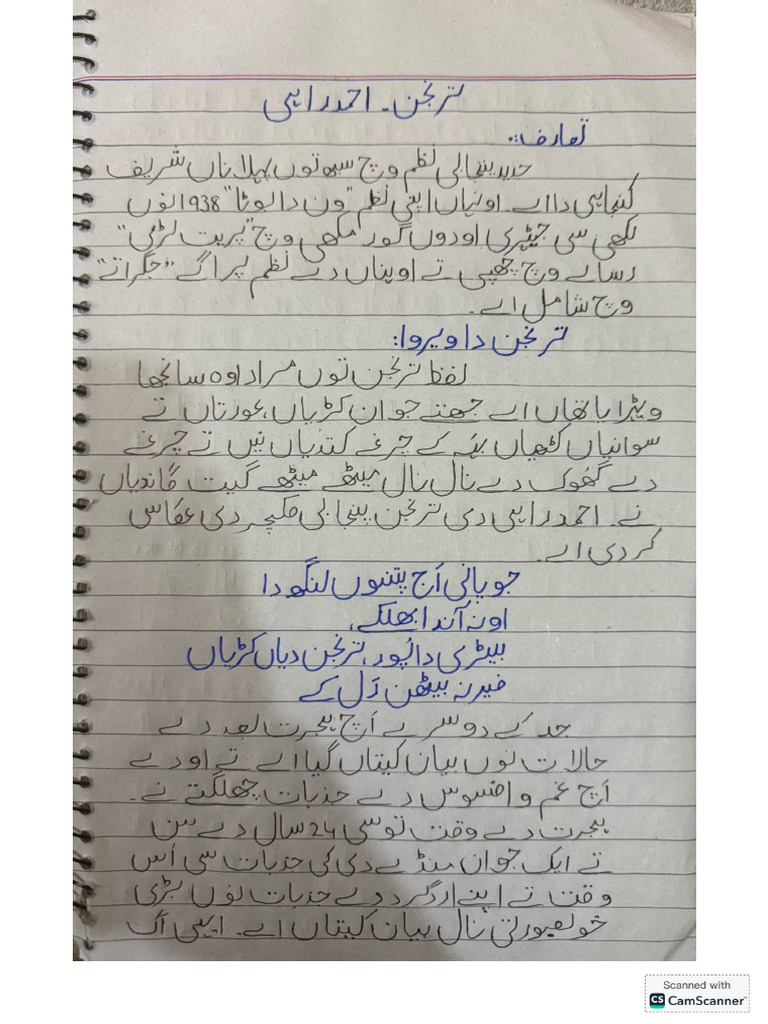 ترنجن۔ احمد راہی
تعارف:۔
جدید پنجابی نظم وچ سبھ توں پہلا ناں شریف
کنجاہی دا اے۔ اوہناں اپنی نظم "ون دا بوٹا" 1938 نوں
لکھی سی جیہڑی اودوں گورمکھی وچ "پریت لڑی"
رسالے وچ چھپی تے اوہناں دے نظم پراگے "جگراتے"
وچ شامل اے۔
ترنجن دا ویروا:
لفظ ترنجن توں مراد اوہ سانجھا
ویڑا یا تھاں اے جھتے جوان کڑیاں، عورتاں تے
سوانیاں کٹھیاں بیہ کے چرغے کتدیاں نیں تے چرغے
دے گھوک دے نال نال میٹھے میٹھے گیت گاندیاں
نے۔ احمد راہی دی ترنجن پنجابی کلچر دی عکاسی
کردی اے۔
جو پانی اَج پتنوں لنگھدا
اونہ آندا بھلکے،
بیڑی دا پور، ترنجن دیاں کڑیاں
فیر نہ بیٹھن رَل کے
جد کے دوسرے اَچ ہجرت بعد دے
حالات نوں بیان کیتاں گیا اے تے اودے
اَچ غم و افسوس دے جذبات چھلکتے نے۔
ہجرت دے وقت توسی 24 سال دے سن
تے ایک جوان منڈے دی کی جذبات سی اُس
وقت تے اپنے اردگرد دے جذبات نوں بڑی
خوبصورتی نال بیان کیتاں اے۔ ایہی اک